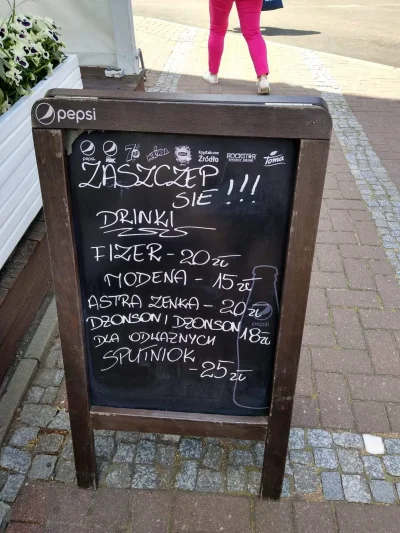 pepsi
pepsi
Krystaliczne Źródło
ROCKSTAR
Toma
ZASZCZEP
SIĘ !!!
DRINKI
FIZER - 20 zł
MODENA - 15 zł
ASTRA ZENKA - 20 zł
DŻONSON I DŻONSON 18 zł
DLA ODWAŻNYCH
SPUTNIOK - 25 zł
pepsi